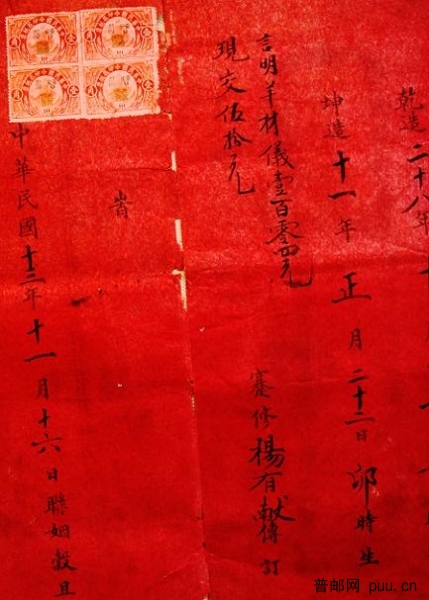 乾造二十八年十
坤造十一年正月二十二日卯時生
言明羊材儀壹百零四元
現交伍拾元
蹇修楊有猷傳訂
肯
中華民國十三年十一月十六日聯姻穀旦
普邮网 puu.cn